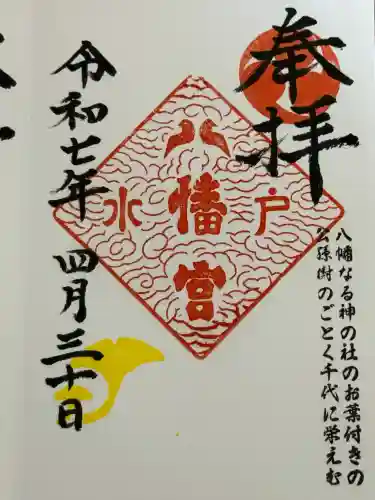 奉拝
八幡なる神の社のお葉付きの
公孫樹のごとく千代に栄えむ
水戸
八幡宮
令和七年四月三十日